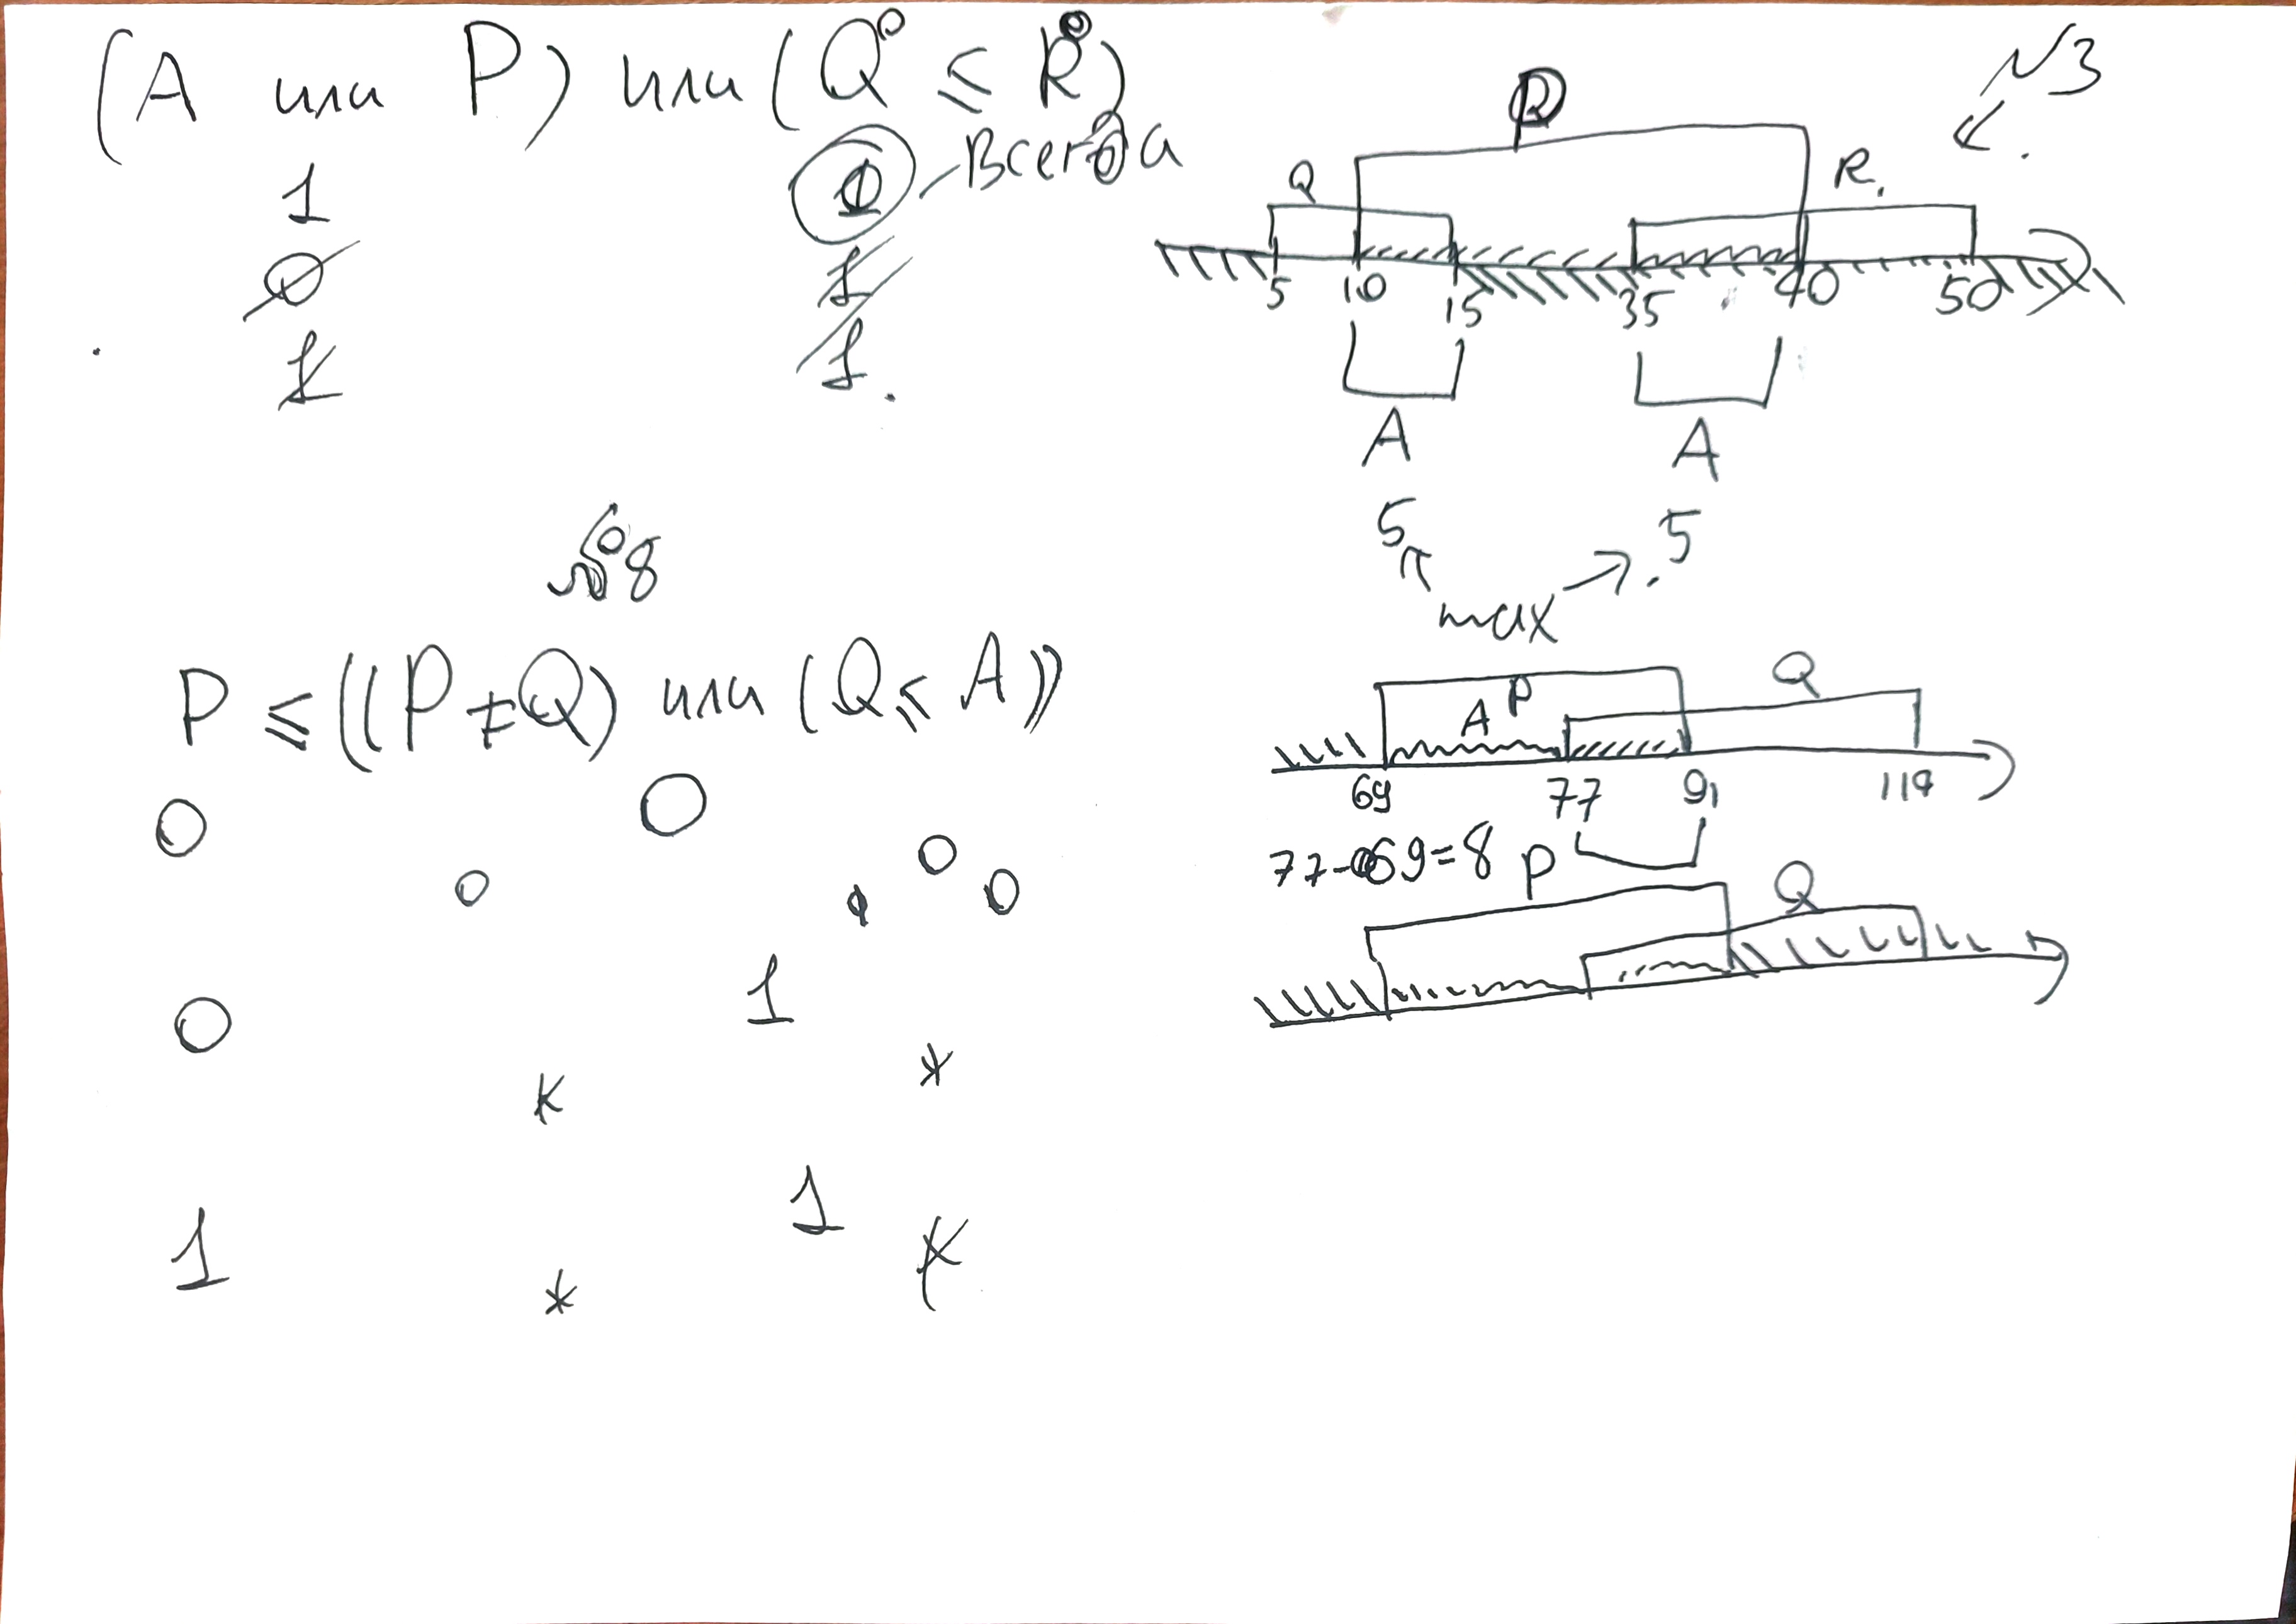 (A или P) или (Q ≤ R)
0 0
1 0 - Всегда
0 1
1 1.
N3
P
Q R.
5 10 15 35 40 50
A A
5 5
max
№8
P ≤ ((P ≠ Q) или (Q ≤ A))
0 0
0 0 0
0 1
* *
1 1
* *
Q
A P
69 77 91 114
77-69=8
P Q